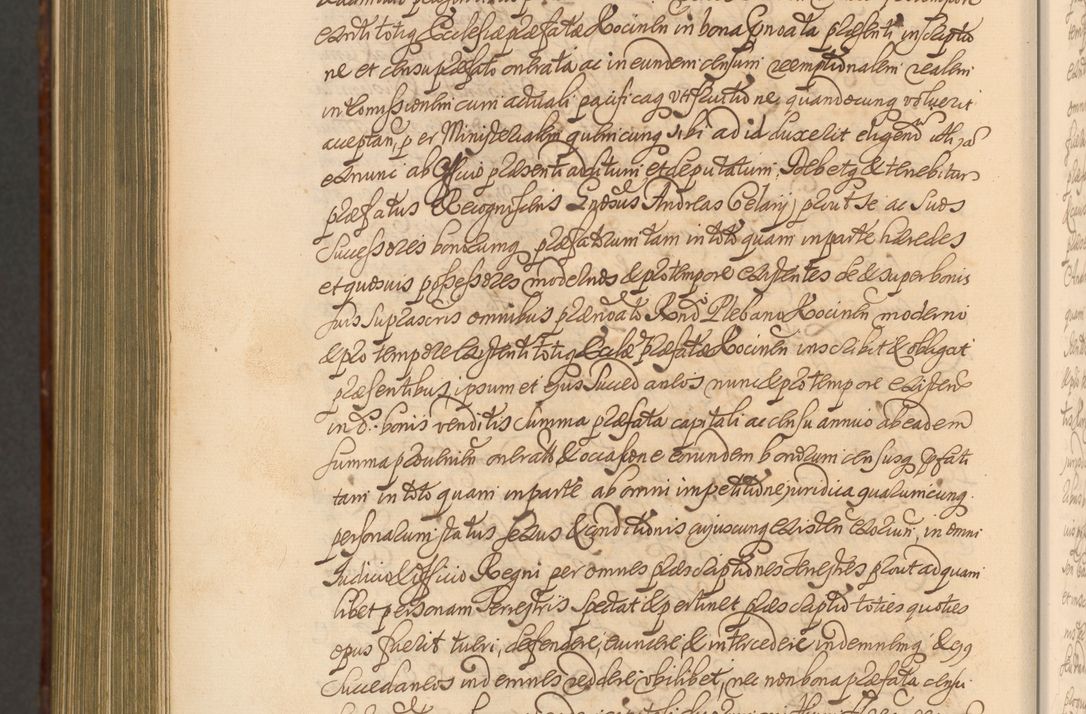 existen totiq Ecclesiæ præfatæ Kocinen in bona prnoata præsenti inscriptio
ne et censu præfato onerata ac in eundem censum reemptionalem realem
intromissionem cum actuali pacificaq possessione, quandocunq voluerit
acceptan, per Ministerialem quemcunq sibi ad id duxerit eligen utiq
ex nunc ab Officio præsenti additum et deputatum, Debetq & tenebitur
præfatus Recognoscens Gnosus Andreas Celary prout se ac suos
Successores bonorumq præfatorum tam in toto quam in parte hæredes
et quosuis possessores modernos & pro tempore existentes de & super bonis
suis suprascris omnibus prænoato Rndo Plebano Kocinen moderno
& pro tempore existenti totiq Ecclæ præfatæ Kocinen inscribit & obligat
præsentibus, ipsum et ejus succedaneos nunc & pro tempore existen
in do bonis venditis summa præfata capitali ac censu annuo ab eadem
summa proueni onerat & occasione eorundem bonorum censusq pfati
tam in toto quam in parte ab omni impetitione juridica qualiumcunq
personarum status sexus & conditionis cujuscunq existen exorien, in omni
Judicio & Officio Regni per omnes præscriptiones terrestres prout ad quam
libet personam Terrestris spectat & pertinet præscriptio toties quoties
opus fuerit tueri, defendere, euincere & intercedere indemnemq & ejq
Succedaneos indemnes reddere obilibet, nec non bona præfata censui